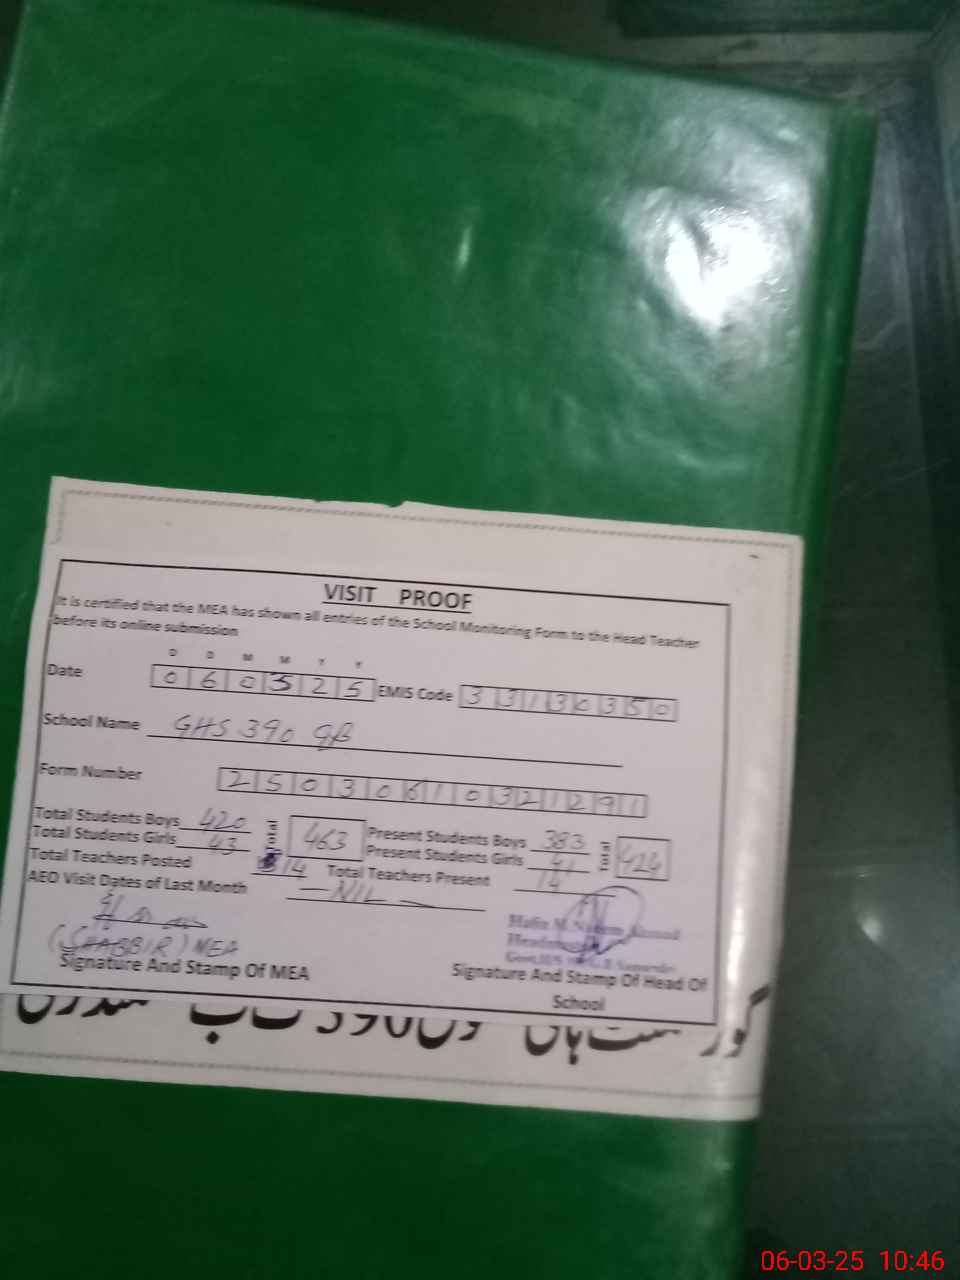 VISIT PROOF
It is certified that the MEA has shown all entries of the School Monitoring Form to the Head Teacher
before its online submission
D D M M Y Y
Date 0 6 0 3 2 5 EMIS Code 3 3 1 3 0 3 5 0
School Name GHS 390 GB
Form Number 2 5 0 3 0 6 1 0 3 2 1 2 9 1
Total Students Boys 420 Total 463 Present Students Boys 383 Total 424
Total Students Girls 43 Present Students Girls 41
Total Teachers Posted 14 Total Teachers Present 14
AEO Visit Dates of Last Month — NIL —
(SHABBIR) MEA
Signature And Stamp Of MEA
Hafiz M. Ahmad
Signature And Stamp Of Head Of
School
گورنمنٹ ہائی 390
06-03-25 10:46